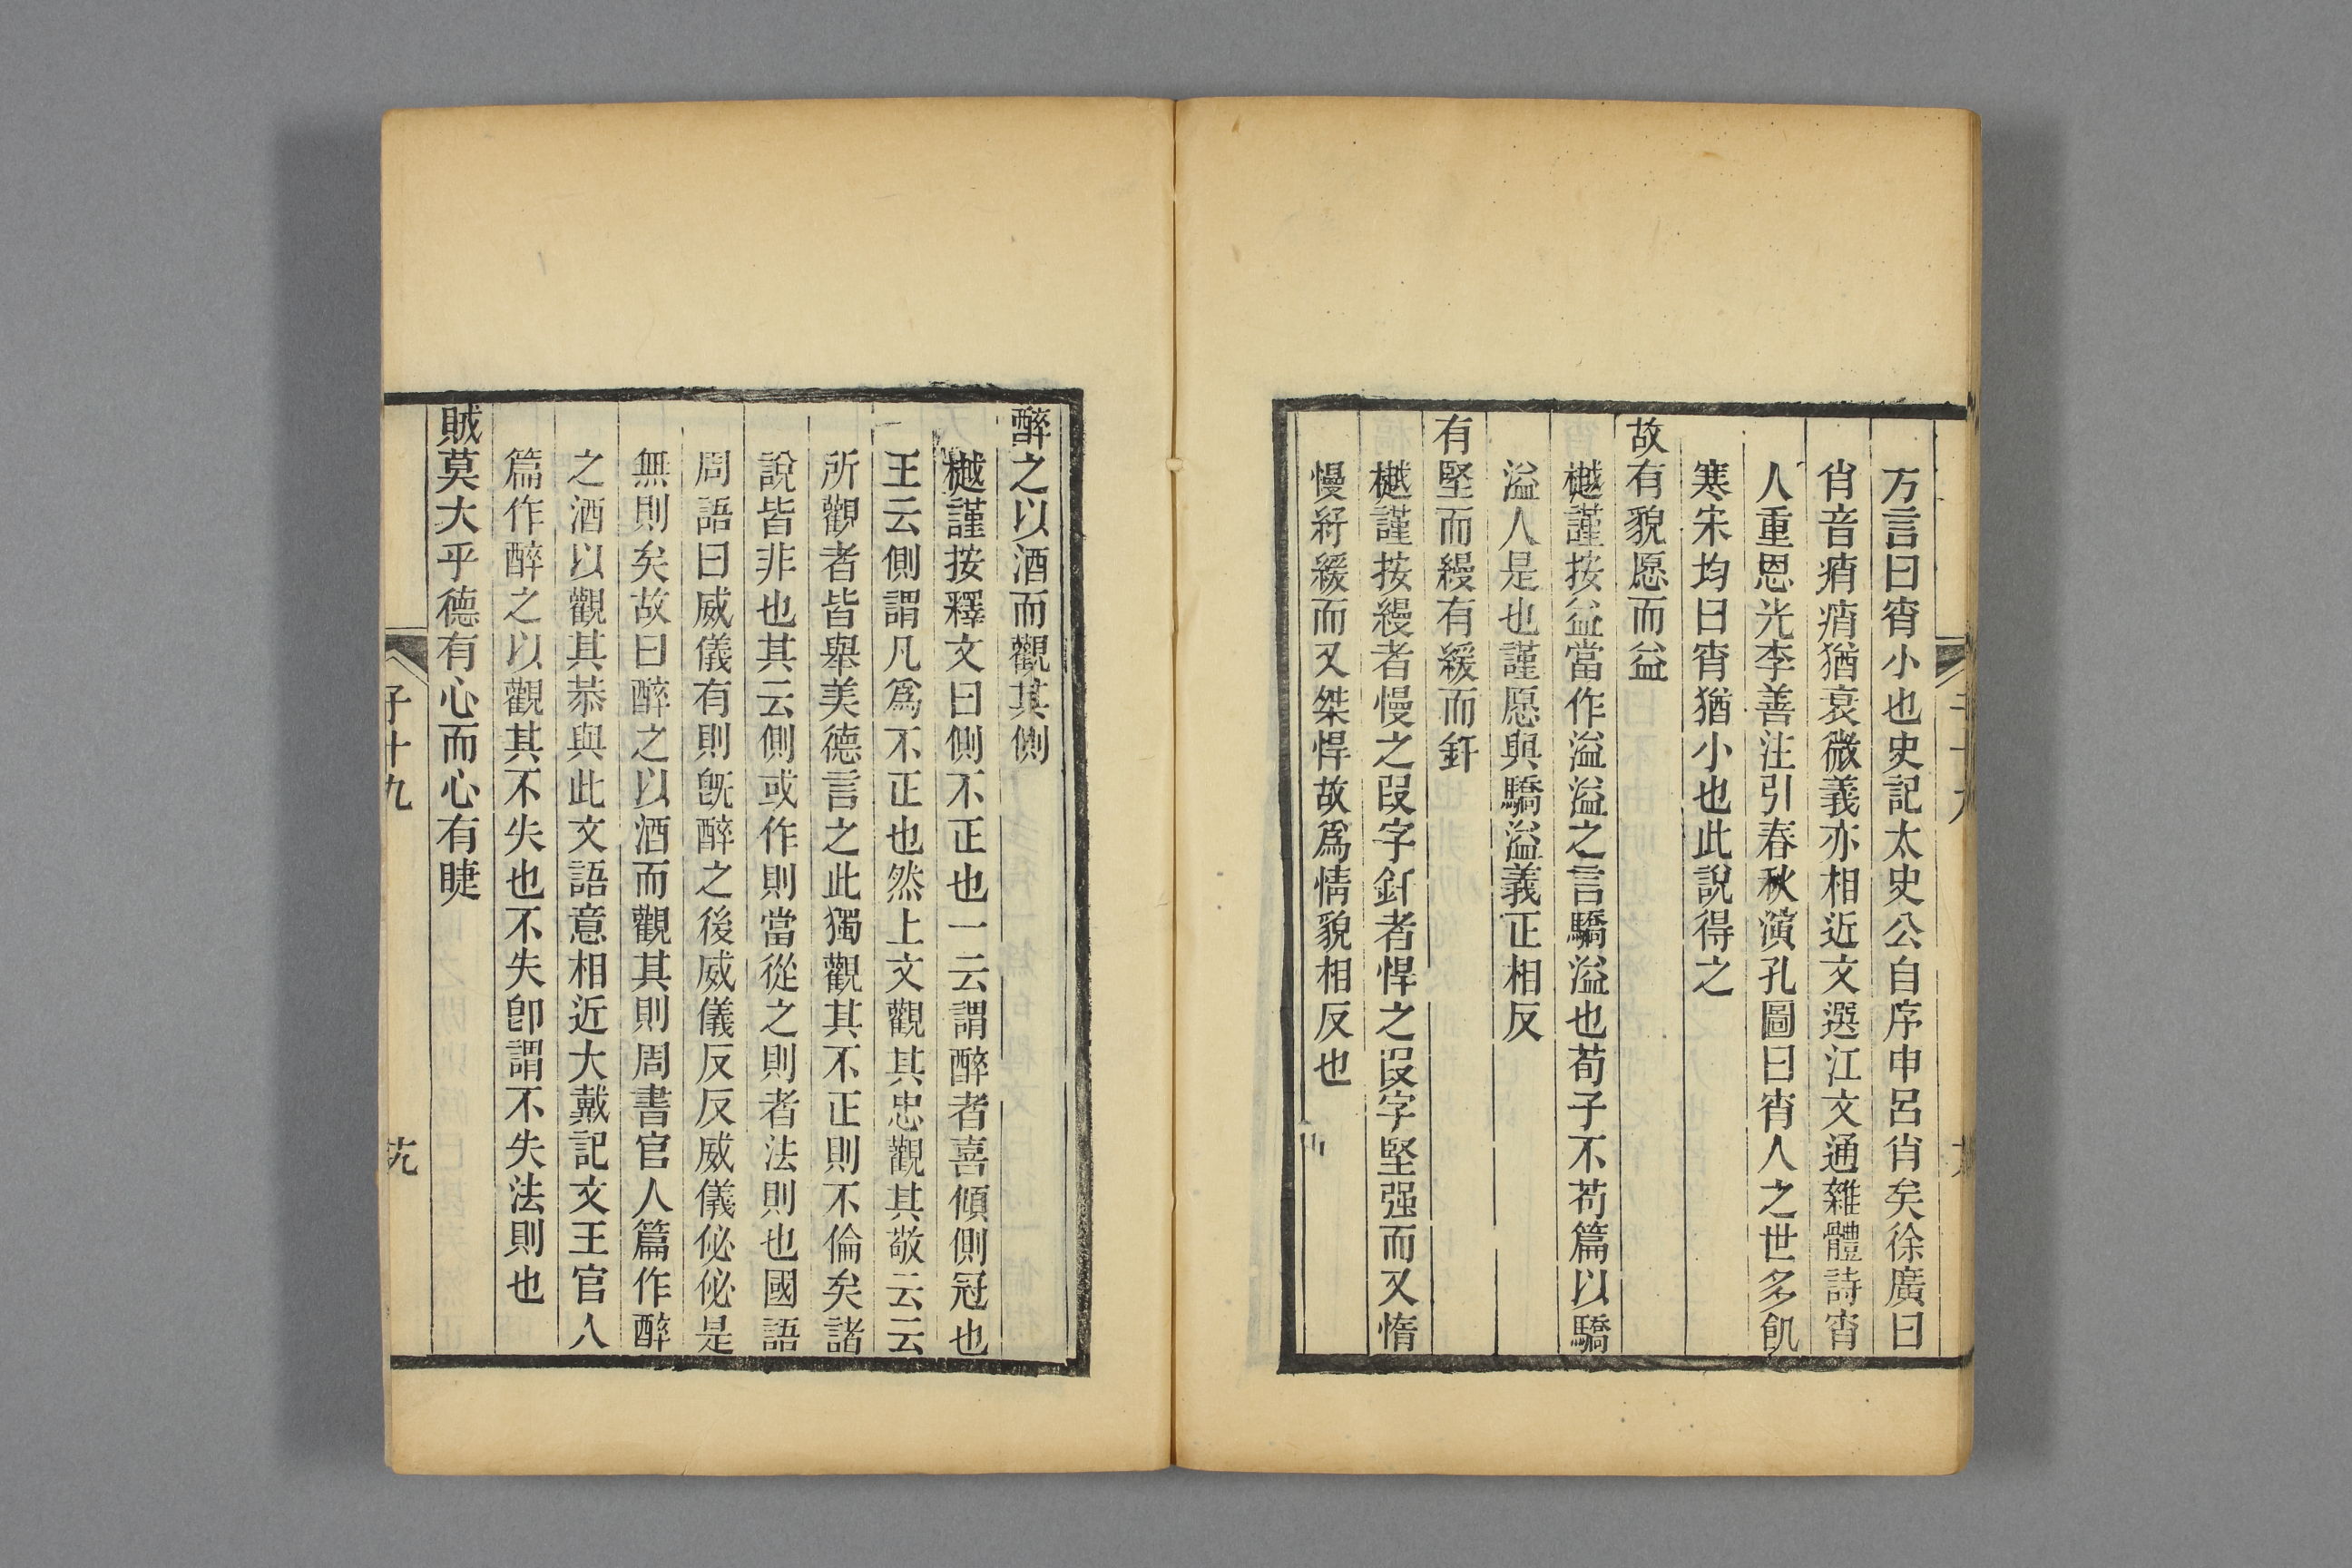 方言曰宵小也史記太史公自序申呂肖矣徐廣曰
肖音痟痟猶衰微義亦相近文選江文通雜體詩宵
人重恩光李善注引春秋演孔圖曰宵人之世多飢
寒宋均曰宵猶小也此說得之
故有貌愿而益
樾謹按益當作溢溢之言驕溢也荀子不苟篇以驕
溢人是也謹愿與驕溢義正相反
有堅而縵有緩而釬
樾謹按縵者慢之叚字釬者悍之叚字堅强而又惰
慢紓緩而又桀悍故爲情貌相反也
醉之以酒而觀其側
樾謹按釋文曰側不正也一云謂醉者喜傾側冠也
王云側謂凡爲不正也然上文觀其忠觀其敬云云
所觀者皆舉美德言之此獨觀其不正則不倫矣諸
說皆非也其云側或作則當從之則者法則也國語
周語曰威儀有則旣醉之後威儀反反威儀佖佖是
無則矣故曰醉之以酒而觀其則周書官人篇作醉
之酒以觀其恭與此文語意相近大戴記文王官人
篇作醉之以觀其不失也不失卽謂不失法則也
賊莫大乎德有心而心有睫
子十九